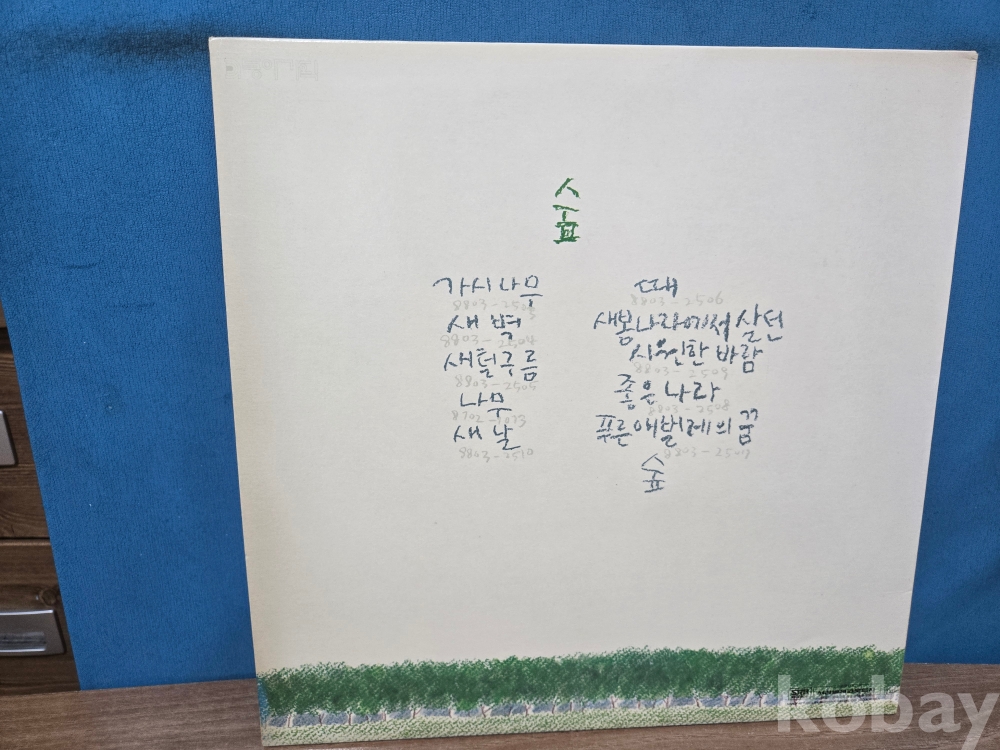 숲
가시나무
새벽
8803-2504
새털구름
8803-2505
나무
8702-7073
새날
8803-2510
때
8803-2506
새봄나라에서 살던
시원한 바람
8803-2509
좋은 나라
8803-2508
푸른 애벌레의 꿈
8803-2507
숲
kobay